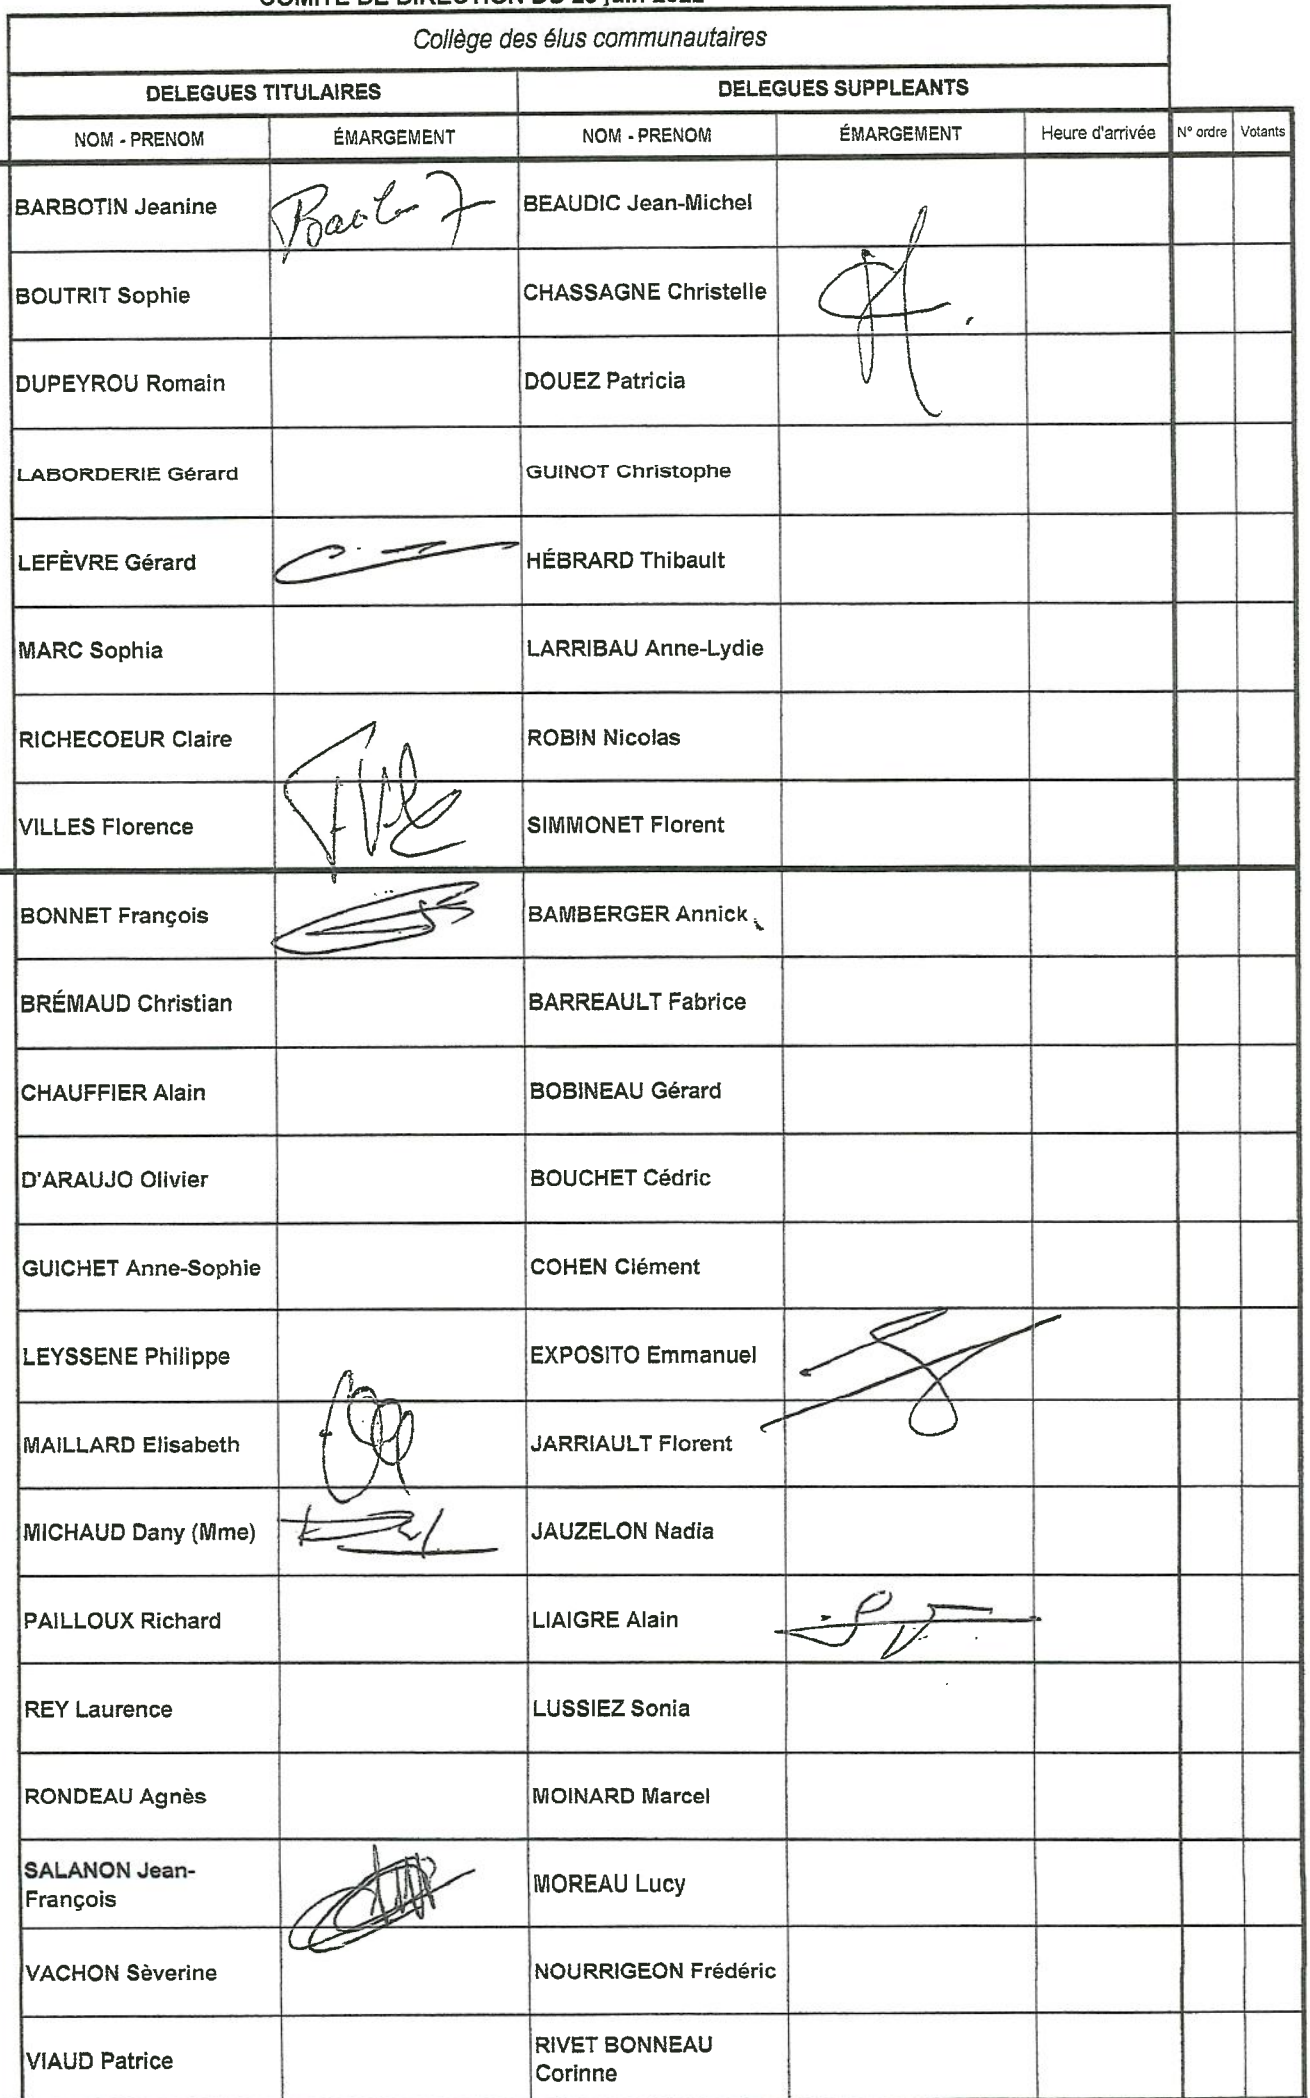 COMITE DE DIRECTION DU 28 juin 2022
Collège des élus communautaires
DELEGUES TITULAIRES DELEGUES SUPPLEANTS
NOM - PRENOM ÉMARGEMENT NOM - PRENOM ÉMARGEMENT Heure d'arrivée N° ordre Votants
BARBOTIN Jeanine BEAUDIC Jean-Michel
BOUTRIT Sophie CHASSAGNE Christelle
DUPEYROU Romain DOUEZ Patricia
LABORDERIE Gérard GUINOT Christophe
LEFÈVRE Gérard HÉBRARD Thibault
MARC Sophia LARRIBAU Anne-Lydie
RICHECOEUR Claire ROBIN Nicolas
VILLES Florence SIMMONET Florent
BONNET François BAMBERGER Annick
BRÉMAUD Christian BARREAULT Fabrice
CHAUFFIER Alain BOBINEAU Gérard
D'ARAUJO Olivier BOUCHET Cédric
GUICHET Anne-Sophie COHEN Clément
LEYSSENE Philippe EXPOSITO Emmanuel
MAILLARD Elisabeth JARRIAULT Florent
MICHAUD Dany (Mme) JAUZELON Nadia
PAILLOUX Richard LIAIGRE Alain
REY Laurence LUSSIEZ Sonia
RONDEAU Agnès MOINARD Marcel
SALANON Jean-
François MOREAU Lucy
VACHON Sèverine NOURRIGEON Frédéric
VIAUD Patrice RIVET BONNEAU
Corinne